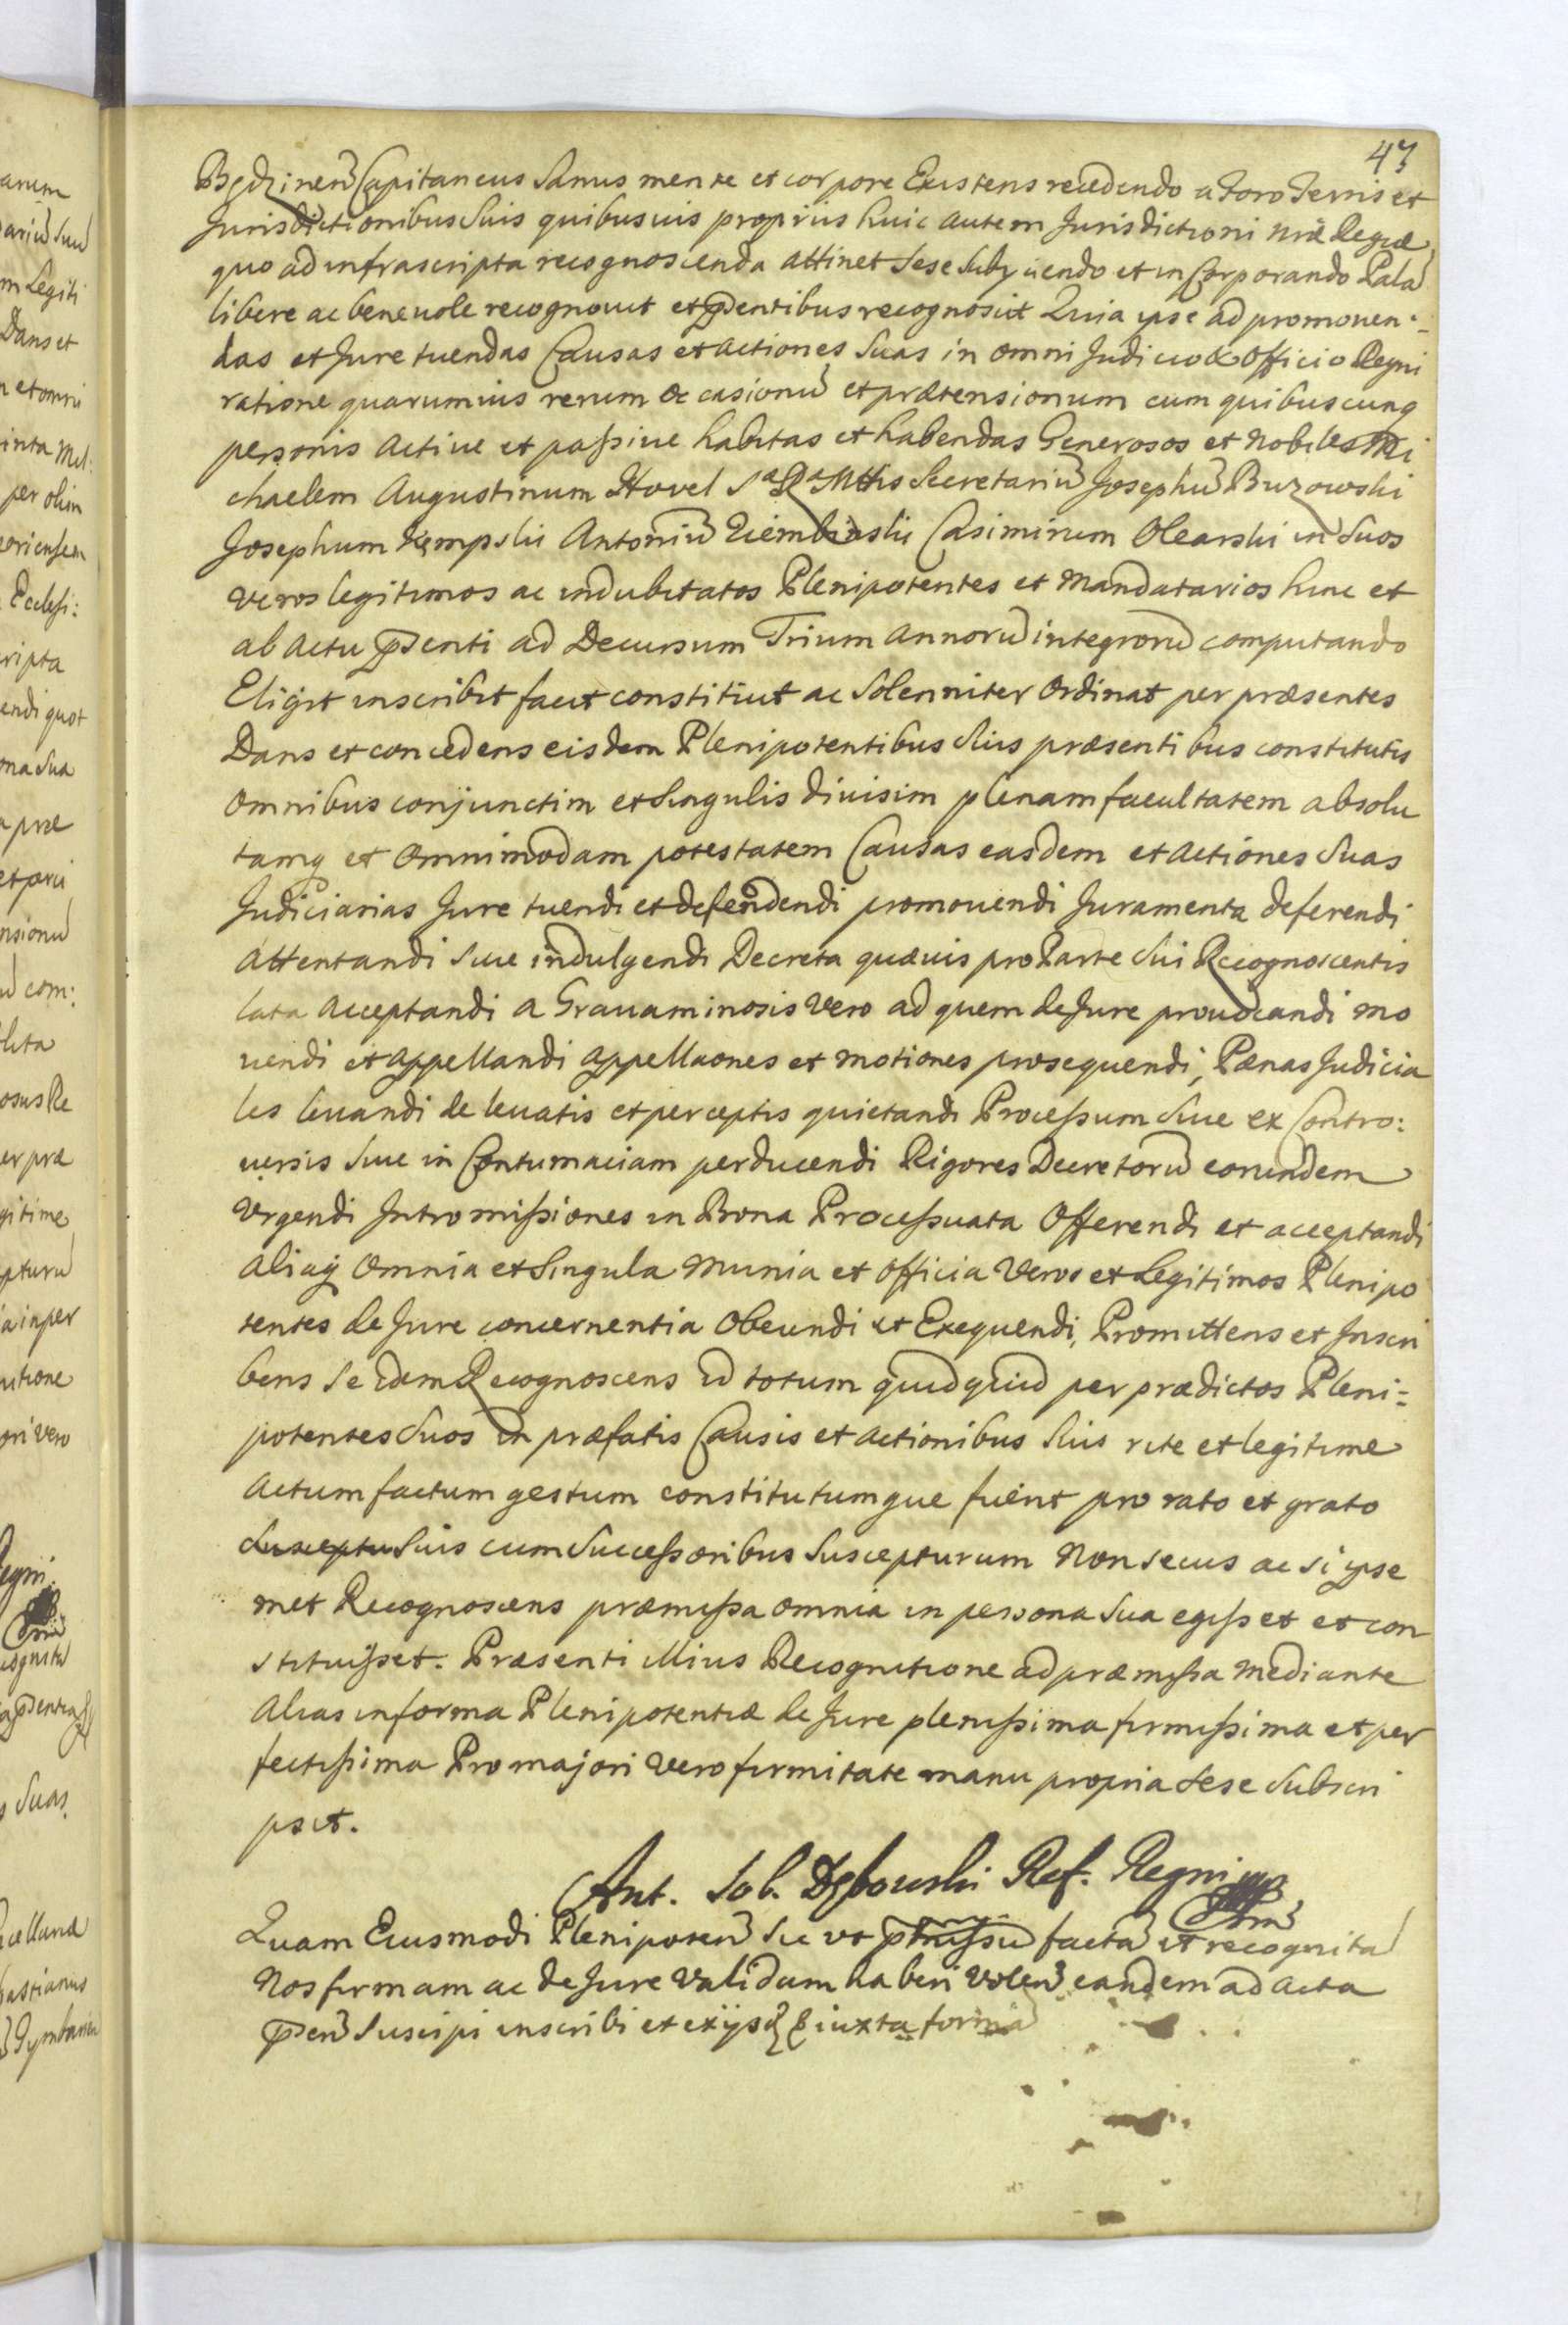 47
Będzinen Capitaneus Sanus mente et corpore Existens recedendo a Foro Terris et
Jurisdictionibus Suis quibusuis proprijs huic autem Jurisdictioni nræ Regiæ
quo ad infrascripta recognoscenda attinet Sese Subijciendo et inCorporando Pala
libere ac beneuole recognouit et pñtibus recognoscit Quia ipse ad promouen-
das et Jure tuendas Causas et actiones Suas in omni Judicio & Officio Regni
ratione quarumuis rerum occasionu et prætensionum cum quibuscunq
personis actiue et passiue habitas et habendas Generosos et Nobiles Mi
chaelem Augustinum Hovel Sæ Ræ Mttis Secretariu Josephu Buzowski
Josephum Kempski Antoniu Ziembinski Casimirum Olearski in Suos
veros legitimos ac indubitatos Plenipotentes et Mandatarios hinc et
ab actu pñsenti ad Decursum Trium annoru integroru computando
Eligit inscribit facit constituit ac Solenniter Ordinat per præsentes
Dans et concedens eisdem Plenipotentibus Suis præsentibus constitutis
omnibus conjunctim et Singulis diuisim plenam facultatem absolu
tamq et Omnimodam potestatem Causas easdem et actiones Suas
Judiciarias Jure tuendi et defendendi promouendi Juramenta deferendi
attentandi Siue indulgendi Decreta quæuis pro Parte Sui Recognoscentis
lata acceptandi a Grauaminosis vero ad quem de Jure prouocandi mo
uendi et appellandi appellaones et motiones prosequendi, Pænas Judicia
les leuandi de leuatis et perceptis quietandi Processum Siue ex Contro:
uersis Siue in Contumaciam perducendi Rigores Decretoru eorundem
Vrgendi Intromissiones in Bona Processuata Offerendi et acceptandi
aliaq Omnia et Singula Munia et Officia Veros et Legitimos Plenipo
tentes de Jure concernentia Obeundi et Exequendi, Promittens et Inscri
bens Se idem Recognoscens id totum quidquid per prædictos Pleni-
potentes Suos in præfatis Causis et actionibus Suis rite et legitime
actum factum gestum constitutumque fuerit pro rato et grato
Susceptu Suis cum Successoribus Suscepturum Non secus ac si ipse
met Recognoscens præmissa omnia in persona Sua egisset et con
stituisset. Præsenti illius Recognitione ad præmissa mediante
Alias in forma Plenipotentiæ de Jure plenissima firmissima et per
fectissima Pro majori vero firmitate manu propria Sese Subscri
psit.
Ant. Sob. Dębowski Ref. Regni mp
Quam Eiusmodi Plenipoten Sic vt facta et recognita
Nos firmam ac de Jure Validam haberi Volen eandem ad acta
pñen Suscipi inscribi et iuxta forma